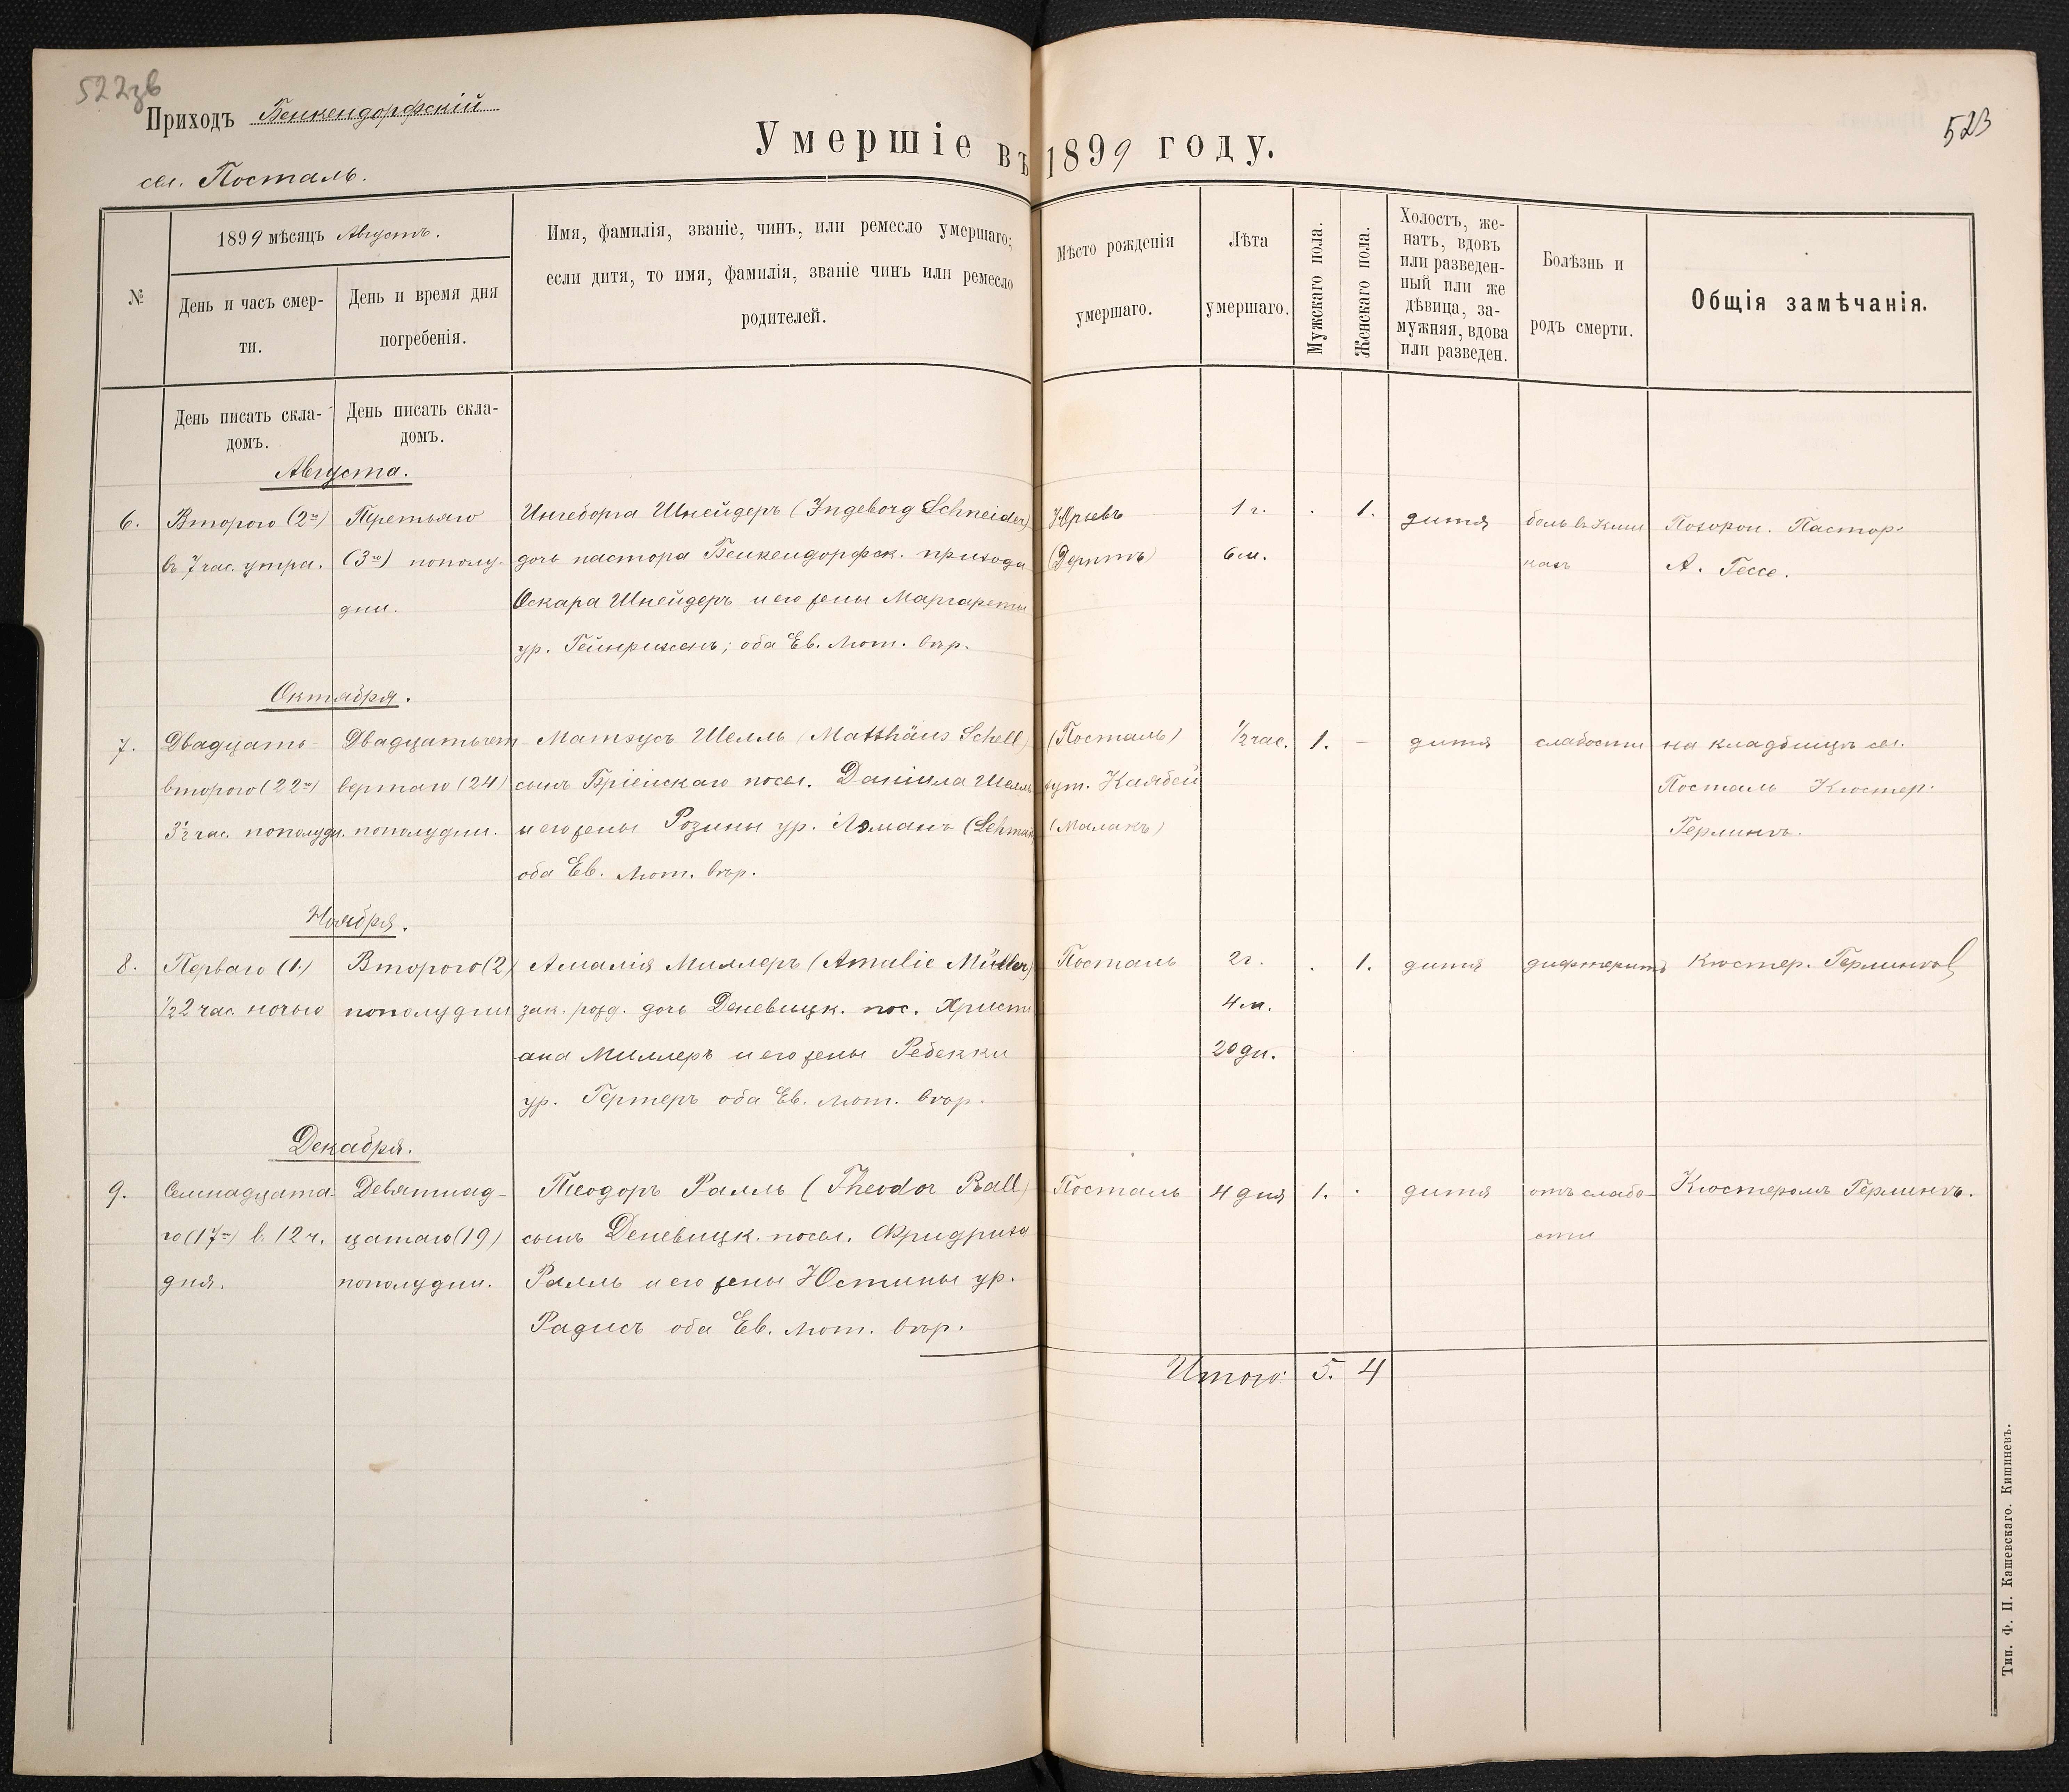 522зв
Приходъ Бенкендорфскій
сел. Посталь.
Умершіе въ 1899 году.
523
№
1899 мѣсяцъ Августъ.
День и часъ смер-
ти.
День и время дня
погребенія.
Имя, фамилія, званіе, чинъ, или ремесло умершаго;
если дитя, то имя, фамилія, званіе чинъ или ремесло
родителей.
Мѣсто рожденія
умершаго.
Лѣта
умершаго.
Мужскаго пола.
Женскаго пола.
Холостъ, же-
натъ, вдовъ
или разведен-
ный или же
дѣвица, за-
мужняя, вдова
или разведен.
Болѣзнь и
родъ смерти.
Общія замѣчанія.
День писать скла-
домъ.
День писать скла-
домъ.
Августа.
6.
Второго (2го)
въ 7 час. утра.
Третьяго
(3го) пополу-
дни.
Ингеборга Шнейдеръ (Ingeborg Schneider)
дочь пастора Бенкендорфск. прихода
Оскара Шнейдеръ и его жены Маргареты
ур. Гейнрихсенъ; оба Ев. Лют. вѣр.
Юрьевъ
(Дерптъ)
1 г.
6 м.
.
1.
дитя
боль въ киш
кахъ
Похорон. Пастор.
А. Гессе.
Октября.
7.
Двадцать
второго (22го)
3½ час. пополудн.
Двадцатьчет
вертаго (24)
пополудни.
Матэусъ Шелль (Matthäus Schell)
сынъ Бріенскаго посел. Даніила Шелль
и его жены Розины ур. Лэманъ (Lehmann)
оба Ев. Лют. вѣр.
(Посталь)
хут. Каябей
(Малакъ)
½ час.
1.
–
дитя
слабости
на кладбищѣ сел.
Посталь Кюстер.
Герлингъ.
Ноября.
8.
Перваго (1.)
½2 час. ночью
Второго (2)
пополудни
Амалія Миллеръ (Amalie Müller)
зак. рожд. дочь Деневицк. пос. Христи
ана Миллеръ и его жены Ребекки
ур. Гертеръ оба Ев. Лют. вѣр.
Посталь
2 г.
4 м.
20 дн.
.
1.
дитя
дифтеритъ
Кюстер. Герлингъ
Декабря.
9.
Семнадцата-
го (17го) в. 12 ч.
дня.
Девятнад-
цатаго (19)
пополудни.
Теодоръ Ралль (Theodor Rall)
сынъ Деневицк. посел. Фридриха
Ралль и его жены Юстины ур.
Радисъ оба Ев. Лют. вѣр.
Посталь
4 дня
1.
.
дитя
отъ слабо-
сти
Кюстеромъ Герлингъ.
Итого:
5.
4
Тип. Ф. П. Кашевскаго. Кишиневъ.